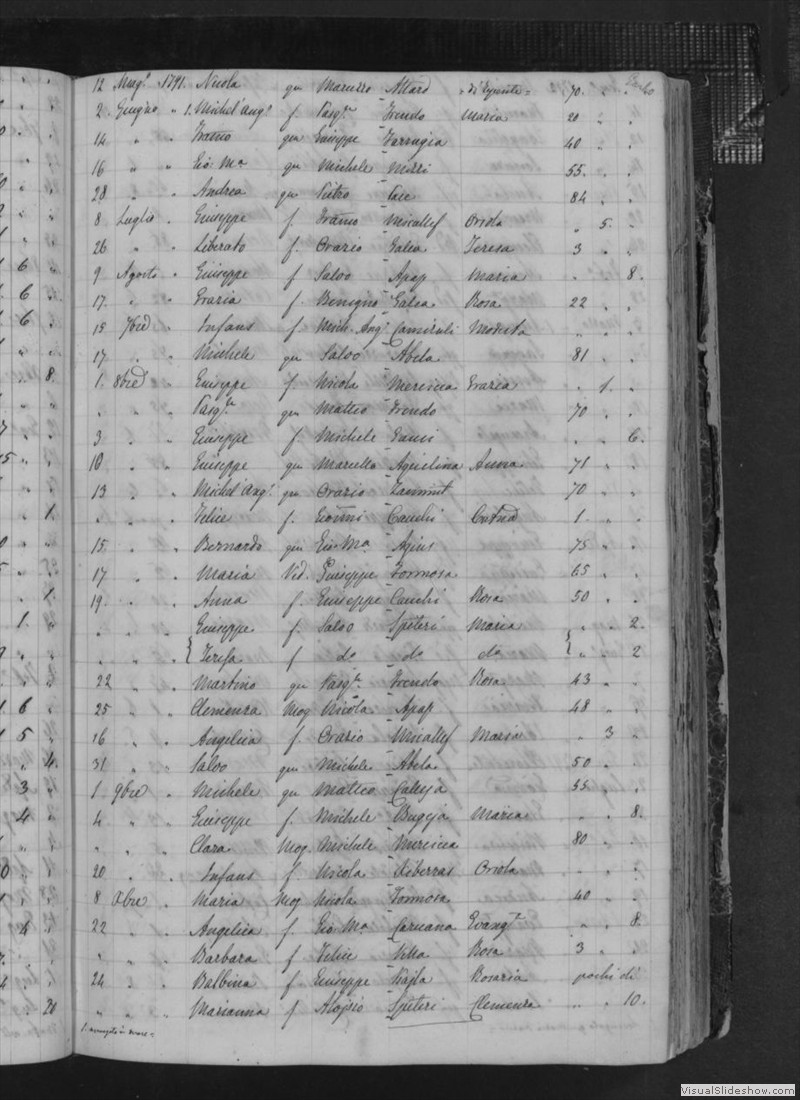 12 Magº 1791. Nicola qm Maruzzo Attard 70 " "
2 Giugno " 1. Michel'Angº f Pasqle Frendo Maria 20 " "
14 " " qm Giuseppe Farrugia 40 " "
16 " " Gio: Ma qm Michele 55. " "
28 " " Andrea qm Pietro Pace 84 " "
8 Luglio " Giuseppe f Micallef Orsola " 5. "
26 " " Liberato f. Orazio Galea Teresa 3 " "
9 Agosto " Giuseppe f Salvo Apap Maria " " 8.
17 " " Grazia f. Benigno Galea Rosa 22 " "
15 7bre " Infans f Mich. Angº Camilleri Modesta " " "
17 " " Michele qm Salvo Abela 81 " "
1. 8bre " Giuseppe f. Nicola Mercieca Grazia " 1. "
" " " Pasqle qm Matteo Frendo 70 " "
3 " " Giuseppe f. Michele Gauci " " 6.
10 " " Giuseppe qm Marcello Aquilina Anna 71 " "
13 " " Michel'Angº qm Orazio Zammit 70 " "
" " " Felice f. Gioanni Cauchi 1. " "
15 " " Bernardo qm Gio: Ma Agius 75 " "
17 " " Maria Ved. Giuseppe Formosa 65 " "
19 " " Anna f. Giuseppe Cauchi Rosa 50 " "
" " " Giuseppe f. Salvo Spiteri Maria " " 2.
" " " { f do do do { " " 2
22 " " Martino qm Pasqle Frendo Rosa 43 " "
25 " " Clemenza Mog Nicola Apap 48 " "
16 " " Angelica f. Orazio Micallef Maria " 3 "
31 " " Salvo qm Michele Abela 50 " "
1 9bre " Michele qm Matteo Calleja 55 " "
4 " " Giuseppe f. Michele Bugeja Maria " " 8.
" " " Clara Mog. Michele Mercieca 80 " "
20 " " Infans f Nicola Xiberras Orsola " " "
8 Xbre " Maria Mog Nicola Formosa 40 " "
22 " " Angelica f. Gio: Ma Caruana Evangta " " 8.
" " " Barbara f Felice Vella Rosa 3 " "
24 " " Balbina f Giuseppe Rosaria pochi dì
" " " Marianna f Aloisio Spiteri Clemenza " " 10.
VisualSlideshow.com